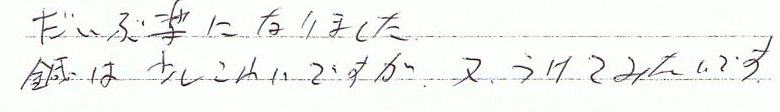 だいぶ楽になりました
鍼は少しこわいですが、又、うけてみたいです